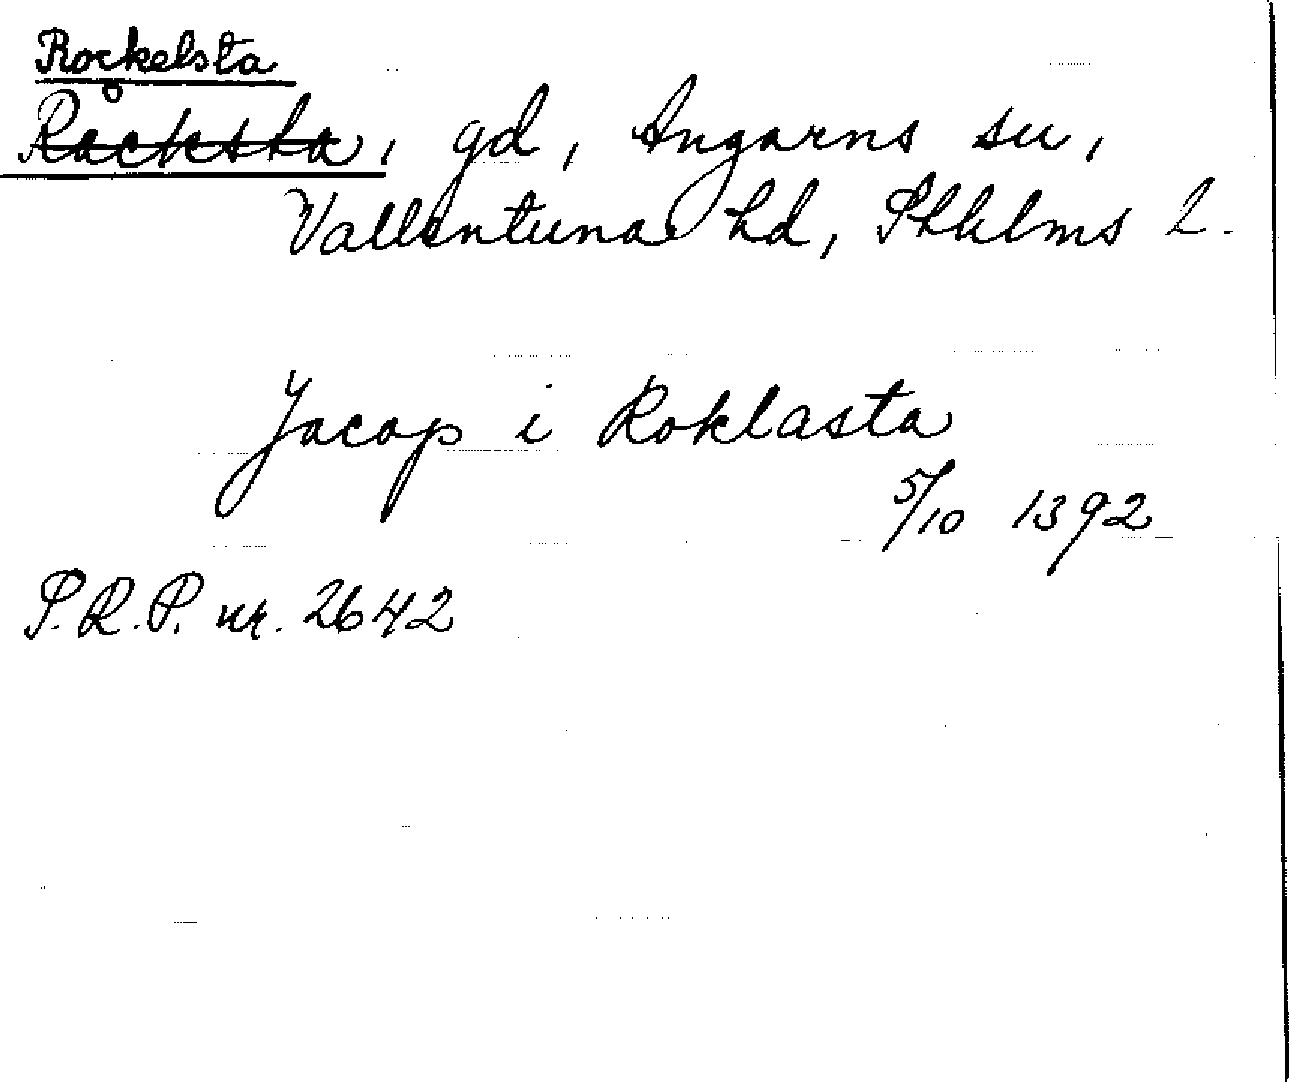 Rockelsta
Råcksta, gd, Angarns su,
Vallentuna hd, Sthlms l.
Jacop i Roklasta
5/10 1392
S.R.P. nr. 2642